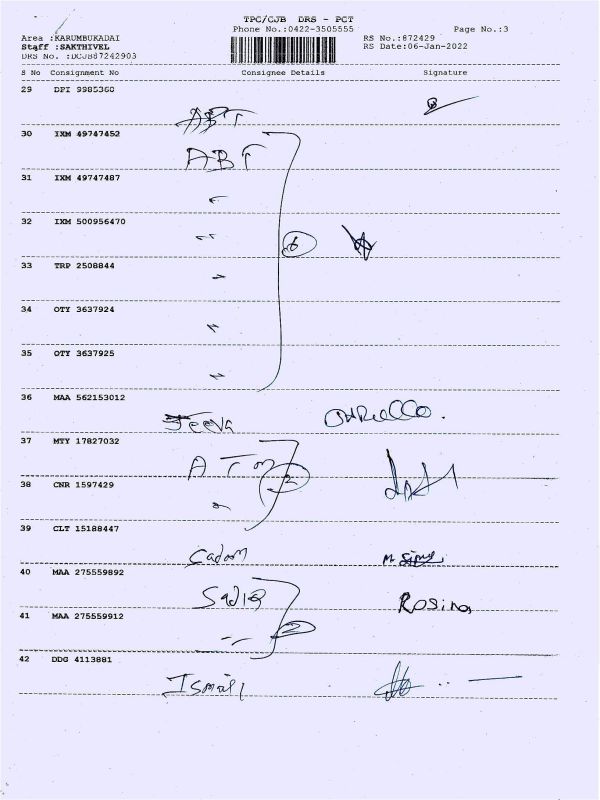 TPC/CJB DRS - PCT
Phone No.:0422-3505555
Page No.:3
Area :KARUMBUKADAI
RS No.:872429
Staff :SAKTHIVEL
RS Date:06-Jan-2022
DRS No. :DCJB87242903
S No Consignment No Consignee Details Signature
29 DPI 9985360
ABT
30 IXM 49747452
ABT
31 IXM 49747487
32 IXM 500956470
6
33 TRP 2508844
34 OTY 3637924
35 OTY 3637925
36 MAA 562153012
Jeeva
37 MTY 17827032
ATM
2
38 CNR 1597429
39 CLT 15188447
40 MAA 275559892
Sadiq Rosina
41 MAA 275559912
2
42 DDG 4113881
Ismail